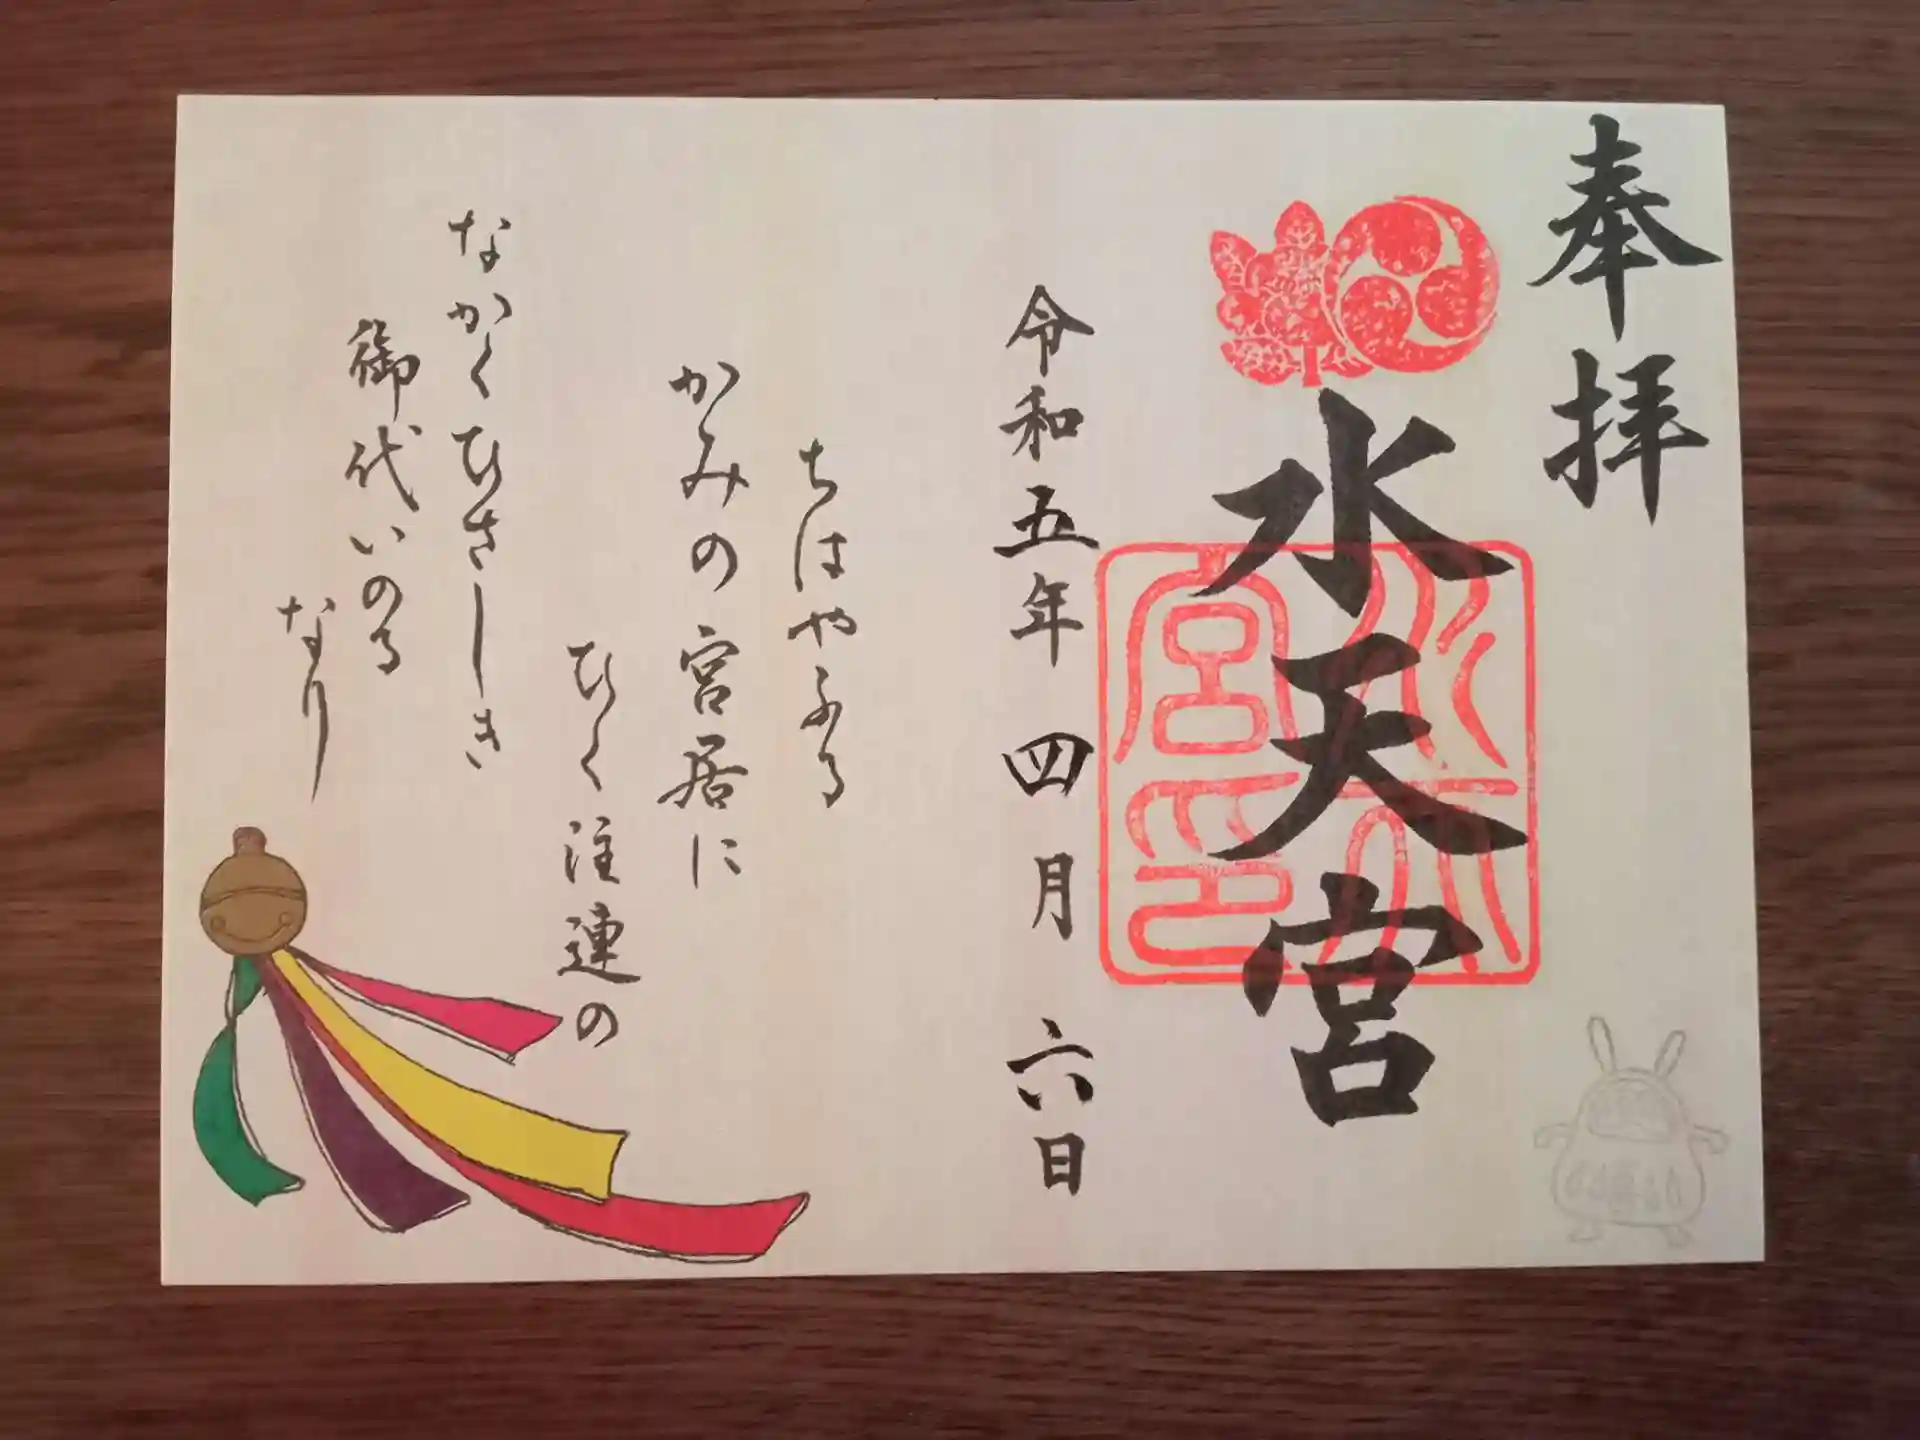 奉拝
水天宮
水天宮印
令和五年四月六日
ちはやふる
かみの宮居に
ひく注連の
なかくひさしき
御代いのる
なり